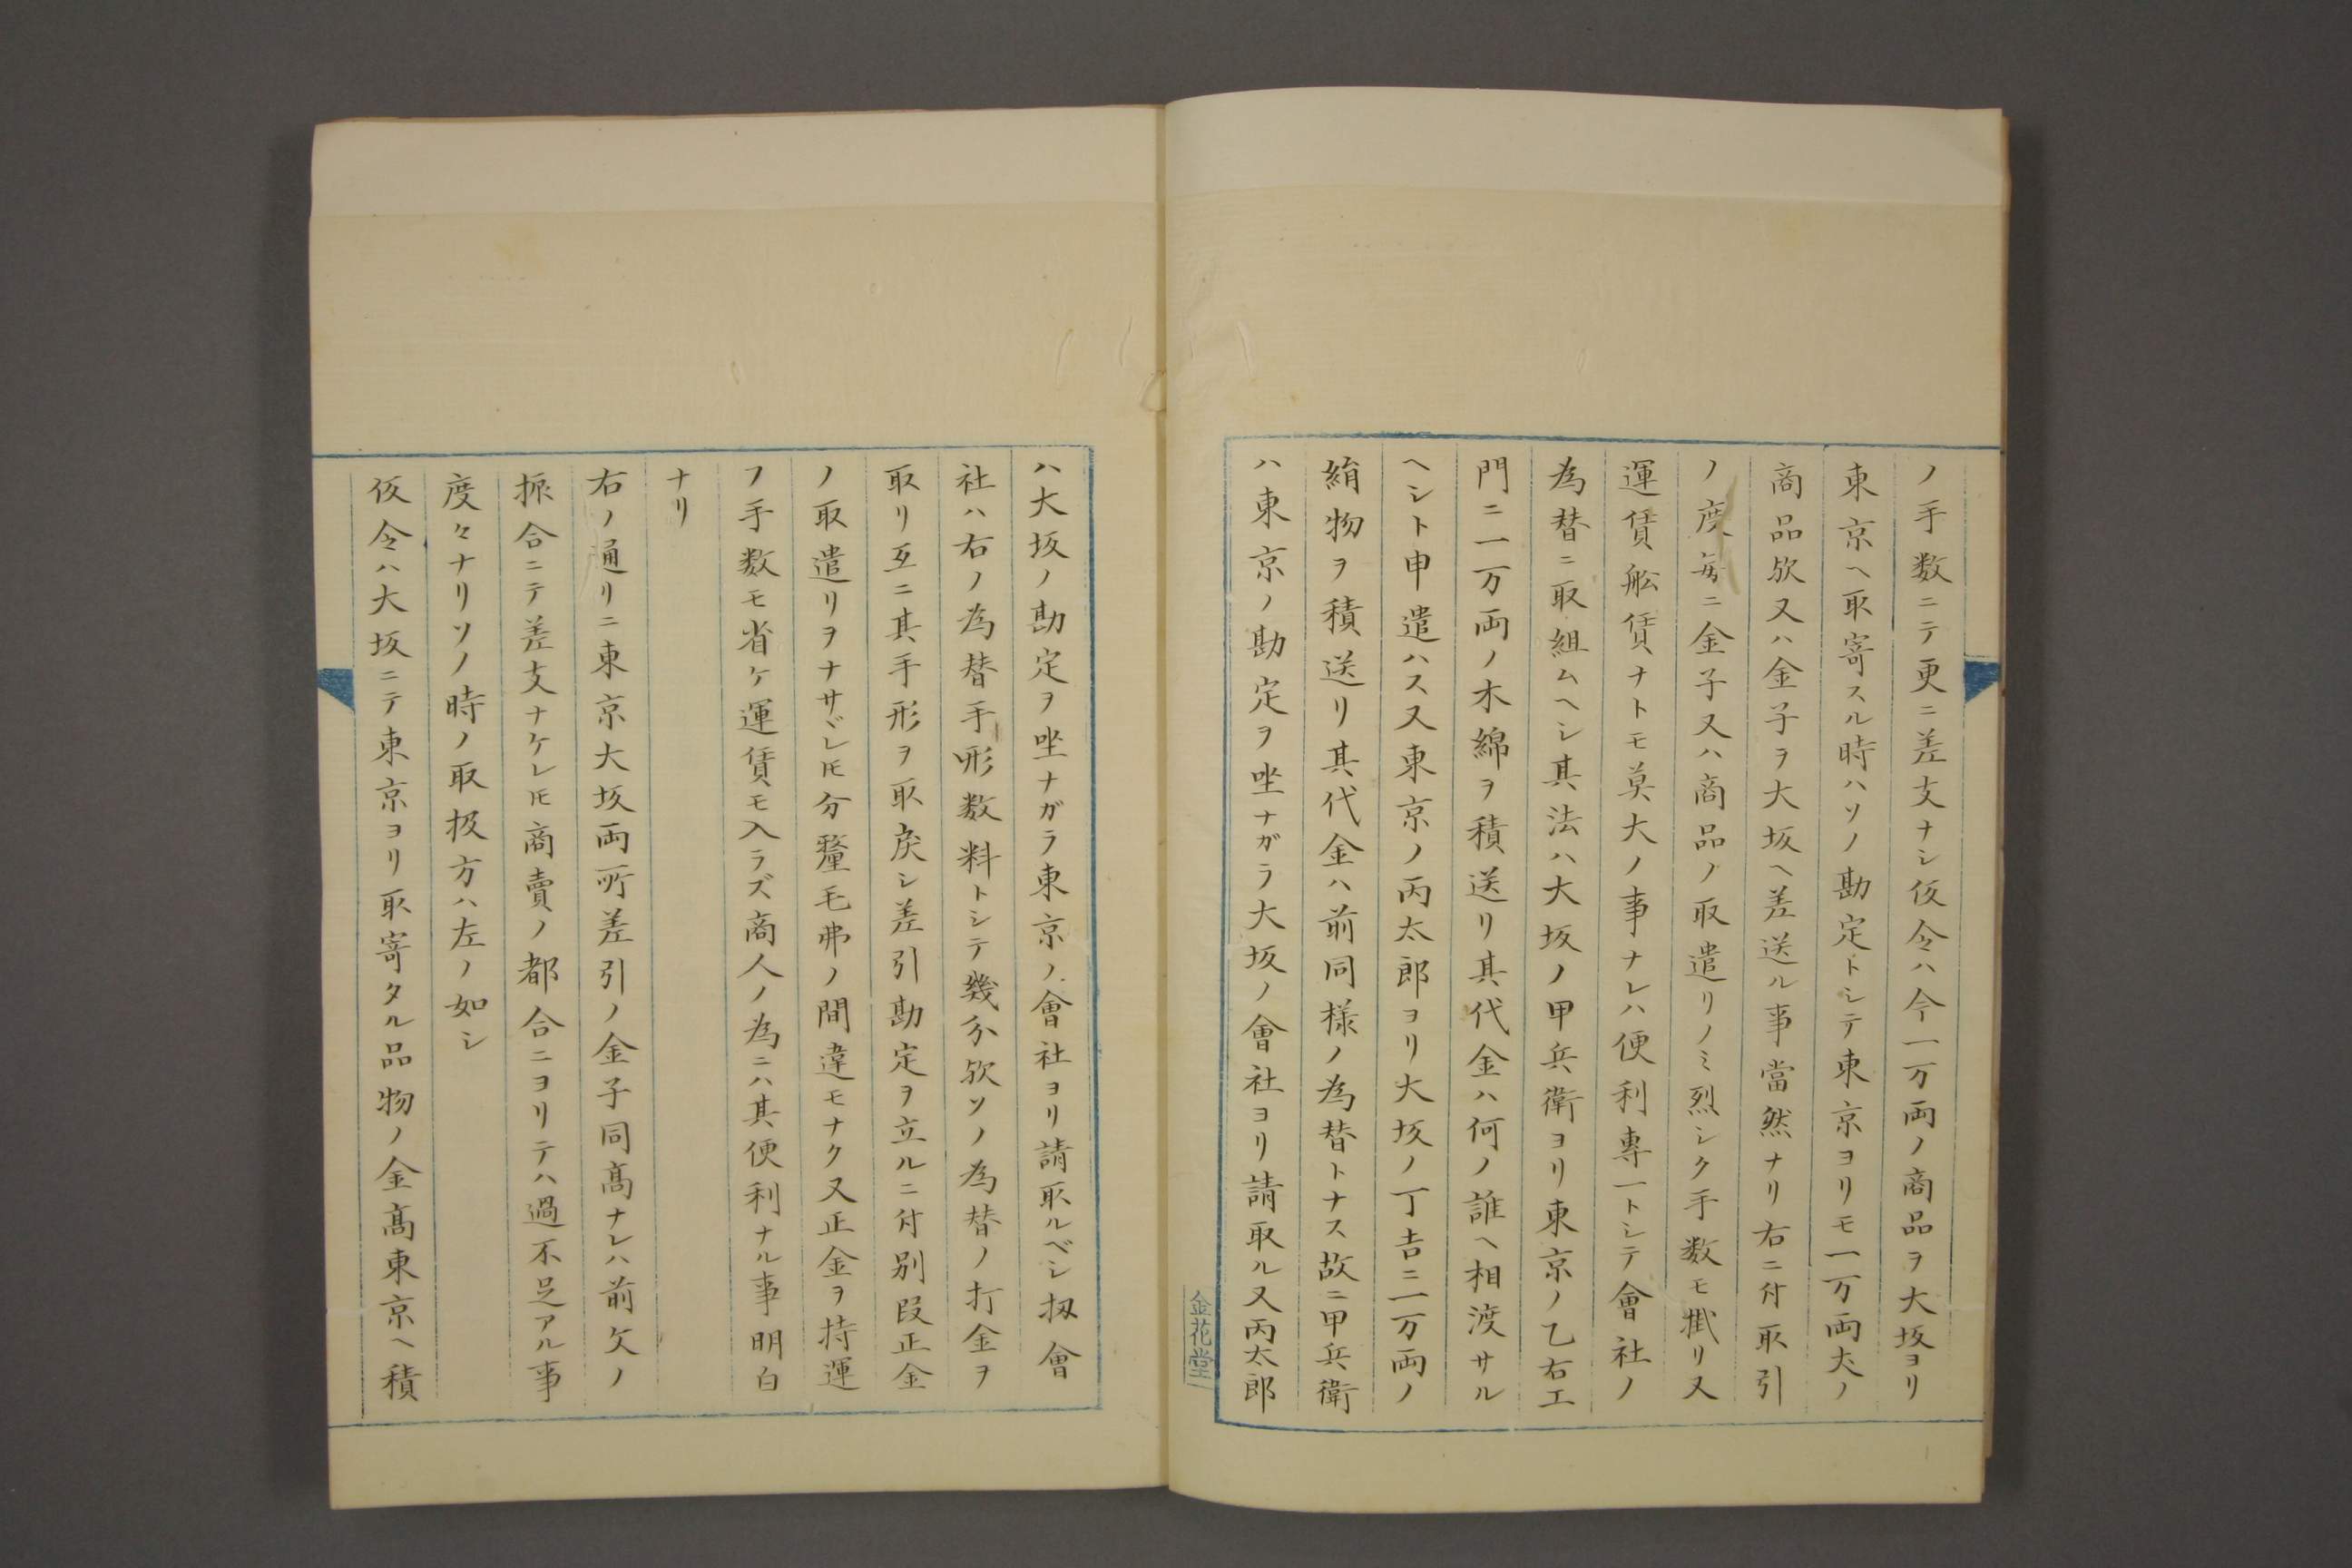 ノ手数ニテ更ニ差支ナシ仮令ハ今一万両ノ商品ヲ大坂ヨリ
東京ヘ取寄スル時ハソノ勘定トシテ東京ヨリモ一万両丈ノ
商品欤又ハ金子ヲ大坂ヘ差送ル事當然ナリ右ニ付取引
ノ度毎ニ金子又ハ商品ノ取遣リノミ烈シク手数モ掛リ又
運賃舩賃ナトモ莫大ノ事ナレハ便利專一トシテ會社ノ
為替ニ取組ムヘシ其法ハ大坂ノ甲兵衛ヨリ東京ノ乙右エ
門ニ一万両ノ木綿ヲ積送リ其代金ハ何ノ誰ヘ相渡サル
ヘシト申遣ハス又東京ノ丙太郎ヨリ大坂ノ丁吉ニ一万両ノ
絹物ヲ積送リ其代金ハ前同様ノ為替トナス故ニ甲兵衛
ハ東京ノ勘定ヲ坐ナガラ大坂ノ會社ヨリ請取ル又丙太郎
金花堂
ハ大坂ノ勘定ヲ坐ナガラ東京ノ會社ヨリ請取ルベシ扨會
社ハ右ノ為替手形数料トシテ幾分欤ソノ為替ノ打金ヲ
取リ互ニ其手形ヲ取戻シ差引勘定ヲ立ルニ付別段正金
ノ取遣リヲナサヾレ𪜈分釐毛弗ノ間違モナク又正金ヲ持運
フ手数モ省ケ運賃モ入ラズ商人ノ為ニハ其便利ナル事明白
ナリ
右ノ通リニ東京大坂両所差引ノ金子同髙ナレハ前文ノ
振合ニテ差支ナケレ𪜈商賣ノ都合ニヨリテハ過不足アル事
度々ナリソノ時ノ取扱方ハ左ノ如シ
仮令ハ大坂ニテ東京ヨリ取寄タル品物ノ金髙東京ヘ積